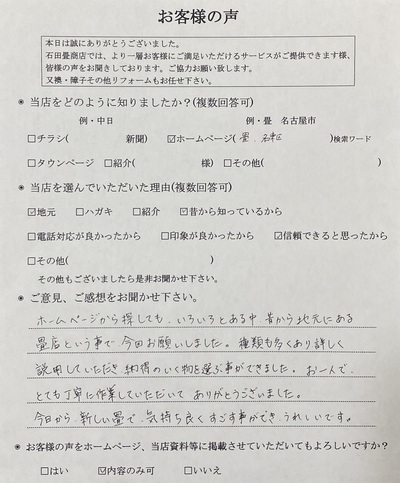 お客様の声
本日は誠にありがとうございました。
石田畳商店では、より一層お客様にご満足いただけるサービスがご提供できます様、
皆様の声をお聞きしております。ご協力お願い致します。
又襖・障子その他リフォームもお任せ下さい。
◉ 当店をどのように知りましたか?(複数回答可)
例・中日 例・畳 名古屋市
□チラシ( 新聞) ☑ホームページ( 畳、 )検索ワード
□タウンページ □紹介( 様) □その他( )
◉ 当店を選んでいただいた理由(複数回答可)
☑地元 □ハガキ □紹介 ☑昔から知っているから
□電話対応が良かったから □印象が良かったから ☑信頼できると思ったから
□その他( )
その他もございましたら是非お聞かせ下さい。
◉ ご意見、ご感想をお聞かせ下さい。
ホームページから探しても、いろいろとある中 昔から地元にある
畳店という事で 今回お願いしました。種類も多くあり詳しく
説明していただき 納得のいく物を選ぶ事ができました。お一人で、
とても丁寧に作業していただいて ありがとうございました。
今日から 新しい畳で、気持ち良くすごす事ができ、うれしいです。
◉ お客様の声をホームページ、当店資料等に掲載させていただいてもよろしいですか?
□はい ☑内容のみ可 □いいえ